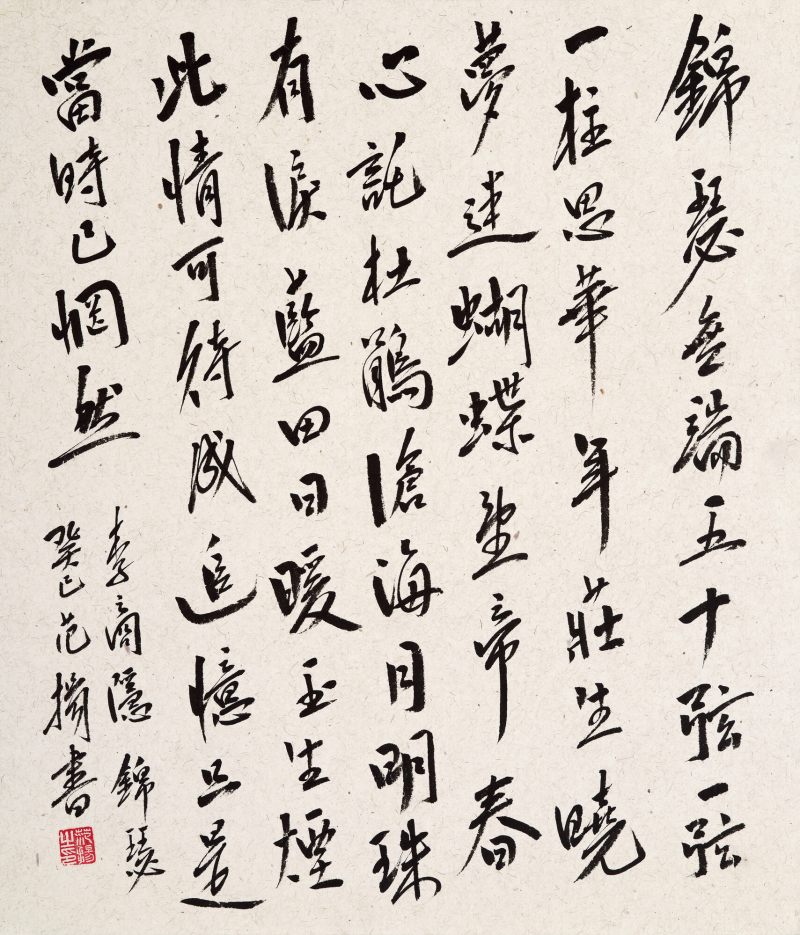 錦瑟無端五十弦一弦
一柱思華年莊生曉
夢迷蝴蝶望帝春
心託杜鵑滄海月明珠
有淚藍田日暖玉生煙
此情可待成追憶只是
當時已惘然
李商隱錦瑟
癸巳范擷書